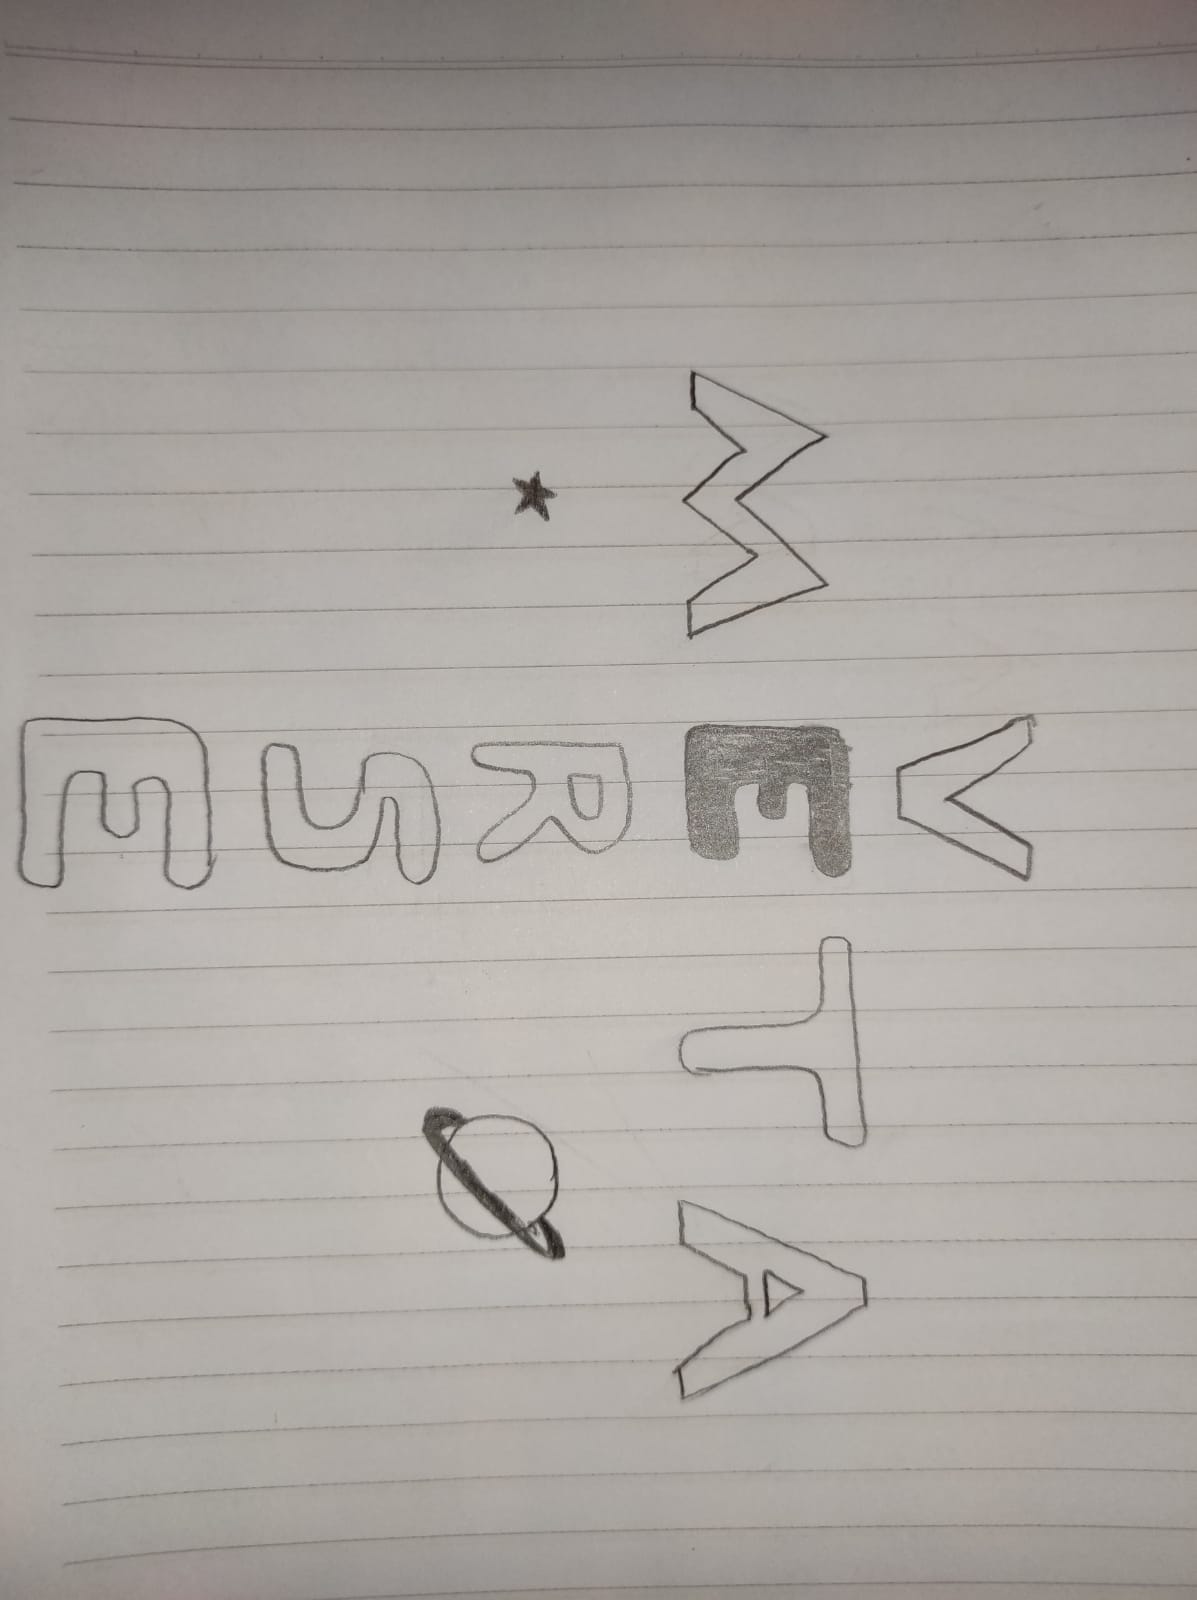 META
VERSE